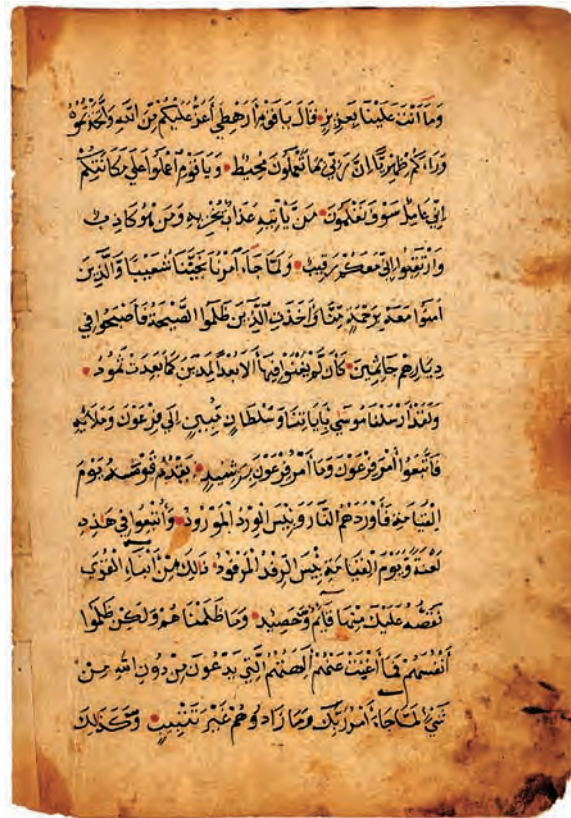 وَمَا أَنْتَ عَلَيْنَا بِعَزِيزٍ • قَالَ يَا قَوْمِ أَرَهْطِي أَعَزُّ عَلَيْكُمْ مِنَ اللَّهِ وَاتَّخَذْتُمُوهُ
وَرَاءَكُمْ ظِهْرِيًّا إِنَّ رَبِّي بِمَا تَعْمَلُونَ مُحِيطٌ • وَيَا قَوْمِ اعْمَلُوا عَلَى مَكَانَتِكُمْ
إِنِّي عَامِلٌ سَوْفَ تَعْلَمُونَ • مَنْ يَأْتِيهِ عَذَابٌ يُخْزِيهِ وَمَنْ هُوَ كَاذِبٌ
وَارْتَقِبُوا إِنِّي مَعَكُمْ رَقِيبٌ • وَلَمَّا جَاءَ أَمْرُنَا نَجَّيْنَا شُعَيْبًا وَالَّذِينَ
آمَنُوا مَعَهُ بِرَحْمَةٍ مِنَّا وَأَخَذَتِ الَّذِينَ ظَلَمُوا الصَّيْحَةُ فَأَصْبَحُوا فِي
دِيَارِهِمْ جَاثِمِينَ • كَأَنْ لَمْ يَغْنَوْا فِيهَا أَلَا بُعْدًا لِمَدْيَنَ كَمَا بَعِدَتْ ثَمُودُ •
وَلَقَدْ أَرْسَلْنَا مُوسَى بِآيَاتِنَا وَسُلْطَانٍ مُبِينٍ إِلَى فِرْعَوْنَ وَمَلَائِهِ
فَاتَّبَعُوا أَمْرَ فِرْعَوْنَ وَمَا أَمْرُ فِرْعَوْنَ بِرَشِيدٍ • يَقْدُمُ قَوْمَهُ يَوْمَ
الْقِيَامَةِ فَأَوْرَدَهُمُ النَّارَ وَبِئْسَ الْوِرْدُ الْمَوْرُودُ • وَأُتْبِعُوا فِي هَذِهِ
لَعْنَةً وَيَوْمَ الْقِيَامَةِ بِئْسَ الرِّفْدُ الْمَرْفُودُ • ذَالِكَ مِنْ أَنْبَاءِ الْقُرَى
نَقُصُّهُ عَلَيْكَ مِنْهَا قَائِمٌ وَحَصِيدٌ • وَمَا ظَلَمْنَاهُمْ وَلَكِنْ ظَلَمُوا
أَنْفُسَهُمْ فَمَا أَغْنَتْ عَنْهُمْ آلِهَتُهُمُ الَّتِي يَدْعُونَ مِنْ دُونِ اللَّهِ مِنْ
شَيْءٍ لَمَّا جَاءَ أَمْرُ رَبِّكَ وَمَا زَادُوهُمْ غَيْرَ تَتْبِيبٍ • وَكَذَالِكَ